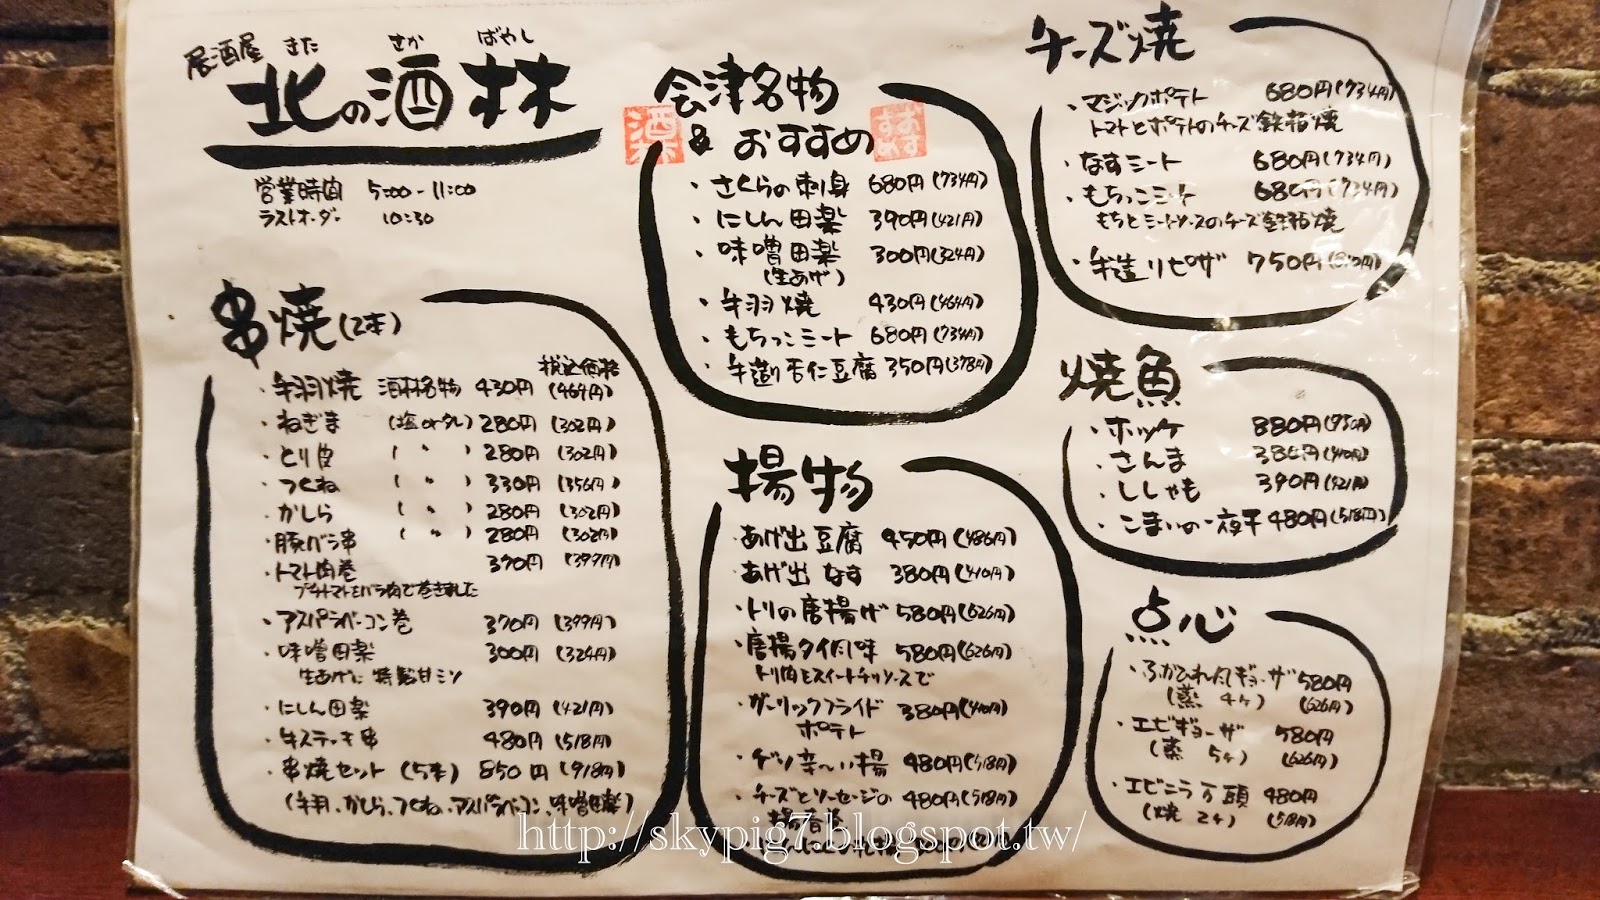 居酒屋 きた さか ばやし
北の酒林
営業時間 5:00-11:00
ラストオーダー 10:30
串焼(2本)
税込価格
・手羽焼 酒林名物 430円(464円)
・ねぎま (塩orタレ) 280円(302円)
・とり皮 ( 〃 ) 280円(302円)
・つくね ( 〃 ) 330円(356円)
・かしら ( 〃 ) 280円(302円)
・豚バラ串 ( 〃 ) 280円(302円)
・トマト肉巻 370円(399円)
プチトマトをバラ肉で巻きました
・アスパラベーコン巻 370円(399円)
・味噌田楽 300円(324円)
生あげに特製甘ミソ
・にしん田楽 390円(421円)
・牛ステーキ串 480円(518円)
・串焼セット (5本) 850円(918円)
(手羽、かしら、つくね、アスパラベーコン、味噌田楽)
会津名物
& おすすめ
酒林
おすすめ
・さくらの刺身 680円(734円)
・にしん田楽 390円(421円)
・味噌田楽 300円(324円)
(生あげ)
・手羽焼 430円(464円)
・もちっこミート 680円(734円)
・手造り杏仁豆腐 350円(378円)
揚物
・あげ出豆腐 450円(486円)
・あげ出なす 380円(410円)
・トリの唐揚げ 580円(626円)
・唐揚タイだし味 580円(626円)
トリ肉をスイートチリソースで
・ガーリックフライド 380円(410円)
ポテト
・ゲソ辛〜い揚 480円(518円)
・チーズとソーセージの 480円(518円)
揚春巻
チーズ焼
・マジックポテト 680円(734円)
トマトとポテトのチーズ鉄板焼
・なすミート 680円(734円)
・もちっこミート 680円(734円)
もちとミートソースのチーズ鉄板焼
・手造りピザ 750円(810円)
焼魚
・ホッケ 880円(950円)
・さんま 380円(410円)
・ししゃも 390円(421円)
・こまいの一夜干 480円(518円)
点心
・ふかひれ風ギョーザ 580円
(蒸 4ヶ) (626円)
・エビギョーザ 580円
(蒸 5ヶ) (626円)
・エビニラ万頭 480円
(焼 2ヶ) (518円)
http://skypig7.blogspot.tw/